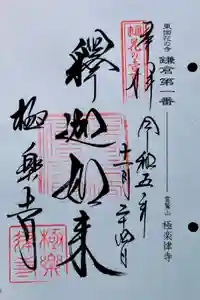 東国花の寺 鎌倉第一番
霊鷲山 極楽律寺
奉拝 令和五年
月二十四日
釋迦如来
極楽寺